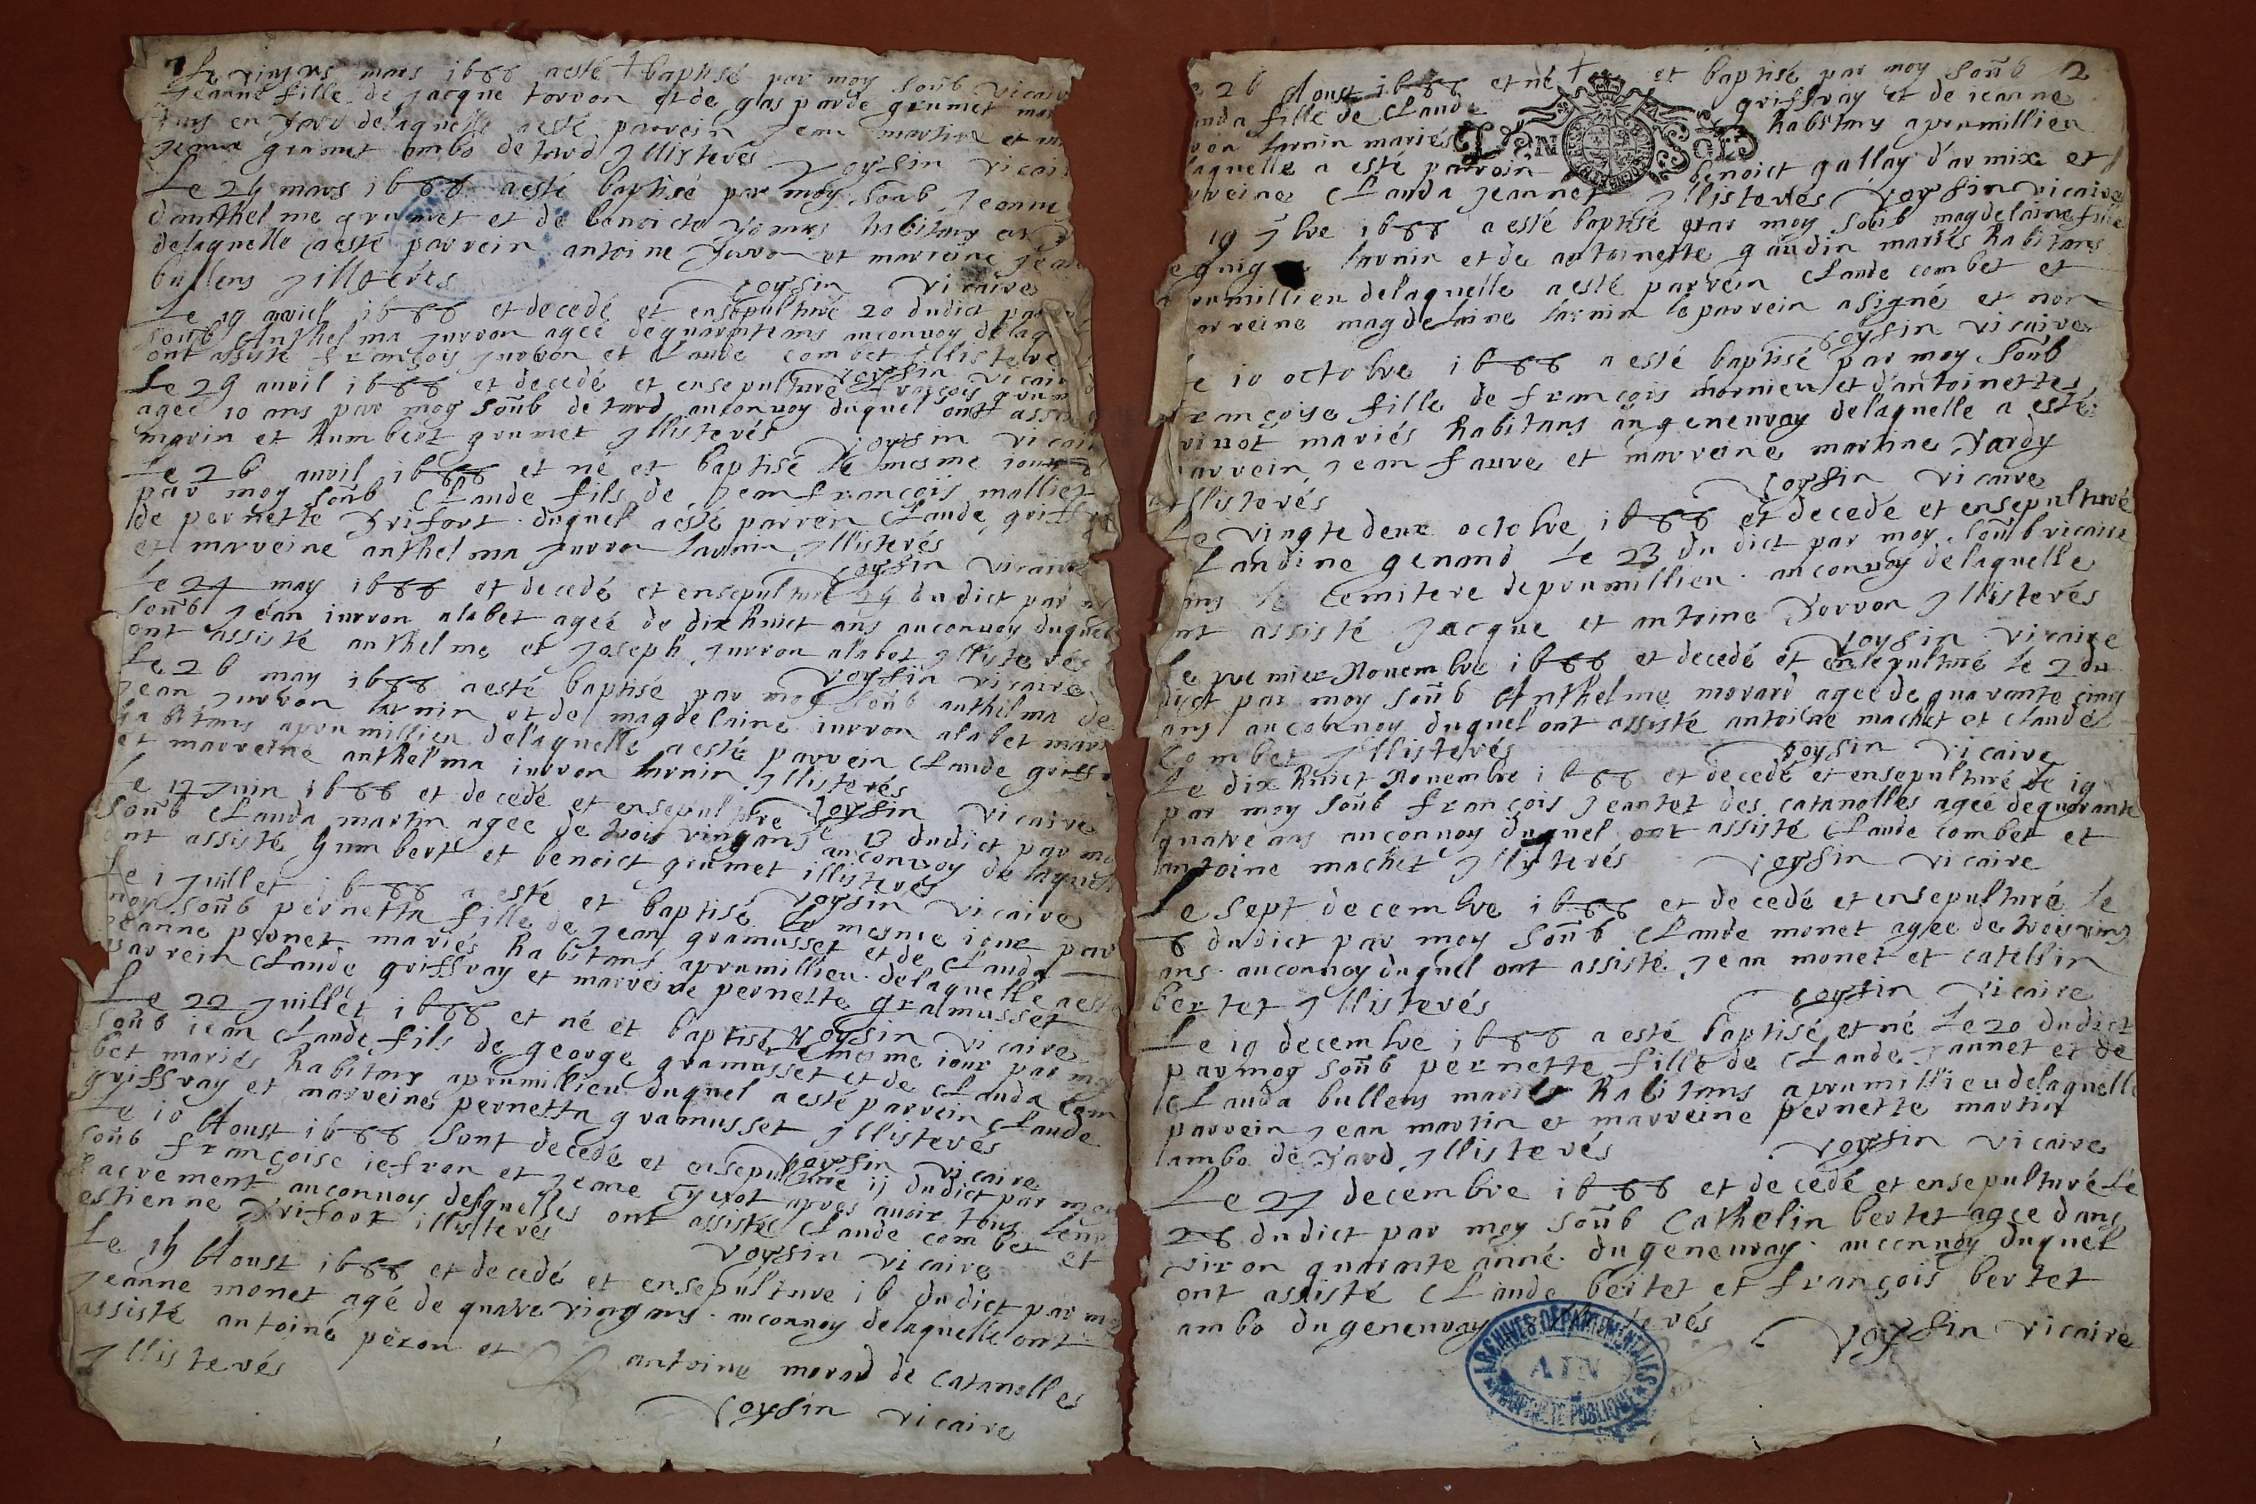 mars 1688 a esté + baptisé par moy soub vicair
Jeanne fille de jacque torvon et de gasparde grumet mar
delaquelle a esté parrein Jean martin et m
grumet ambo de tard Jllisterés Voysin vicai
Le 24 mars 1688 a esté baptisé par moy soub Jeanne
d'anthelme grumet et de benoicte habitans
delaquelle a esté parrein antoine Jurron et marreine jean
bullens Jllisterés Voysin vicaire
Le 19 avril 1688 et decedé et ensepulturé 20 dudict par
soub Anthelma jurron ageé de quarantems auconvoy delaq
ont assisté françois jurron et Claude combet Jllisteré
Voysin vicair
Le 29 auril 1688 et decedé et ensepulturé françois grum
ageé 10 ans par moy soub de tard auconvoy duquel ont assi
marin et humbert grumet Jllisterés Voysin vicair
Le 26 auril 1688 et né et baptisé le mesme iour
par moy soub Claude fils de Jean françois malliet
de pernette Trifort. duquel a esté parrein Claude griffr
et marreine anthelma jurron larnin Jllisterés
Voysin vicaire
Le 24 may 1688 et decedé et ensepulturé 25 dudict par
soub jean iurron alabet ageé de dix huict ans auconvoy duquel
ont assisté anthelme et joseph jurron alabet Jllisterés
Voysin vicaire
Le 26 may 1688 a esté baptisé par moy soub anthelma de
jean jurron larnin et de magdelaine iurron alabet mari
habitans aprumillieu delaquelle a esté parrein Claude griff
et marreine anthelma iurron larnin Jllisterés
Voysin vicaire
Le 12 Juin 1688 et decedé et ensepulture le 13 dudict par mo
soub Clauda martin agee de trois vingans auconvoy de laquel
ont assisté humbert et benoict grumet illisterés
Voysin vicaire
Le 1 Juillet 1688 a esté et baptisé le mesme iour par
moy soub pernetta fille de jean gramusset et de Clauda
jeanne pernet mariés habitans aprumillieu. delaquelle a esté
parrein Claude griffray et marreine pernette gramusset
Voysin vicaire
Le 22 Juillet 1688 et né et baptisé le mesme iour par moy
soub iean Claude fils de george gramusset et de Clauda Com
bet mariés habitans aprumillieu duquel a esté parrein Claude
griffray et marreine pernetta gramusset Jllisterés
Voysin vicaire
Le 10 Aoust 1688 sont decedé et ensepulturé 11 dudict par moy
soub françoise iefron et jeane apres avoir tous leur
sacrement auconvoy desquelles ont assisté Claude combet et
estienne Trifort illisterés Voysin vicaire
Le 15 Aoust 1688 et decedé et ensepulture 16 dudict par mo
jeanne monet agé de quatre vingans. auconvoy delaquelle ont
assisté antoine peron et antoine morard de Catanolles
Jllisterés
Voysin vicaire
2
26 Aoust 1688 et né + et baptisé par moy soub
anda fille de Claude griffray et de ieanne
LYON SOLS
larnin mariés habitans aprumillieu
laquelle a esté parrein benoict gallay d'armix et
rreine Clauda Jeannet Jllisterés Voysin vicaire
19 7bre 1688 a esté baptisé par moy soub magdelaine fille
larnin et de antoinette gaudin mariés habitans
rumillieu delaquelle a esté parrein Claude combet et
arreine magdelaine larnin le parrein a signé et non
Voysin vicaire
Le 10 octobre 1688 a esté baptisé par moy soub
françoise fille de françois mornieu et d'antoinette
vinot mariés habitans au genenvay delaquelle a esté
parrein jean faure et marreine martine Tardy
Jllisterés Voysin vicaire
Le vingtedeux octobre 1688 et decede et ensepulturé
Clandine genand le 23 dudict par moy soub vicaire
ans le Cemitere de prumillieu. auconvoy delaquelle
ont assisté Jacque et antoine Torvon Jllisterés
Voysin vicaire
Le premier Novembre 1688 et decedé et ensepulturé le 2 du
dict par moy soub Anthelme morard ageé de quarante cinq
ans auconvoy duquel ont assisté antoine machet et Claude
Combet Jllisterés Voysin vicaire
Le dix huict Novembre 1688 et decedé et ensepulturé le 19
par moy soub françois Jeantet des catanolles ageé dequarante
quatre ans auconvoy duquel ont assisté Claude combet et
antoine machet Jllysterés Voysin vicaire
Le sept decembre 1688 et decedé et ensepulturé le
8 dudict par moy soub Claude monet agee de trois vins
ans. auconvoy duquel ont assisté Jean monet et catellin
bertet Jllisterés Voysin vicaire
Le 19 decembre 1688 a esté baptisé et né le 20 dudict
par moy soub pernette fille de Claude jannet et de
Clauda bullens mariés habitans aprumillieu delaquelle
parrein jean martin et marreine pernette martin
ambo de Tard Jllisterés Voysin vicaire
Le 27 decembre 1688 et decedé et ensepulturé le
28 dudict par moy soub Cathelin bertet agee dans
viron quarante anné. du genenvay. auconvoy duquel
ont assisté Claude bertet et françois bertet
ambo du genenvay Jllisterés
Voysin vicaire
ARCHIVES DEPARTEMENTALES
AIN
PROPRIETE PUBLIQUE